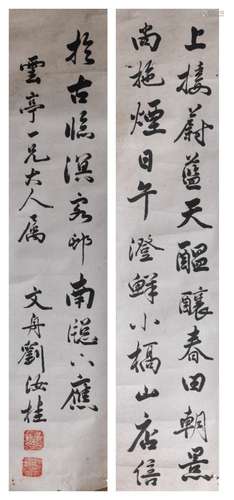 上接蔚藍天醞釀春田朝景
尚拖煙日午澄鮮小橋山店倍
於古臨溟客邸南隱
應
雲亭一兄大人属
文舟劉汝桂